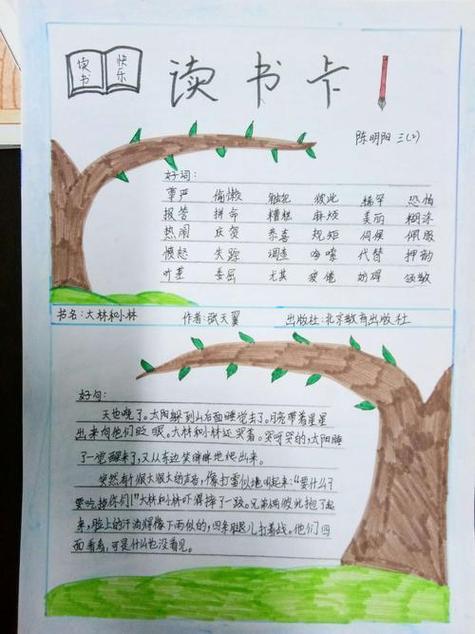 读书
快乐
读书卡
陈明阳 三(2)
好词:
事严 偷懒 彼此 稀罕 恐怕
报答 拼命 糟糕 麻烦 美丽 糊涂
热闹 庆贺 恭喜 规矩 伺候 佩服
愤怒 失踪 调查 代替
委屈 尤其 疲倦 妨碍
书名:大林和小林 作者:张天翼 出版社:北京教育出版社
好句:
天也晚了。太阳躲到山后面睡觉去了。月亮带着星星
出来向他们眨眼。大林和小林还哭着。哭呀哭的,太阳睡
了一觉醒来了,又从东边笑眯眯地爬出来。
突然有个很大很大的声音,像打雷似地叫起来:“要什么?
要吃掉你们!”大林和小林吓得摔了一跤。兄弟俩彼此抱了起
来,脸上的汗油得像下雨似的,四条腿儿打着战。他们四
面看看,可是什么也没看见。